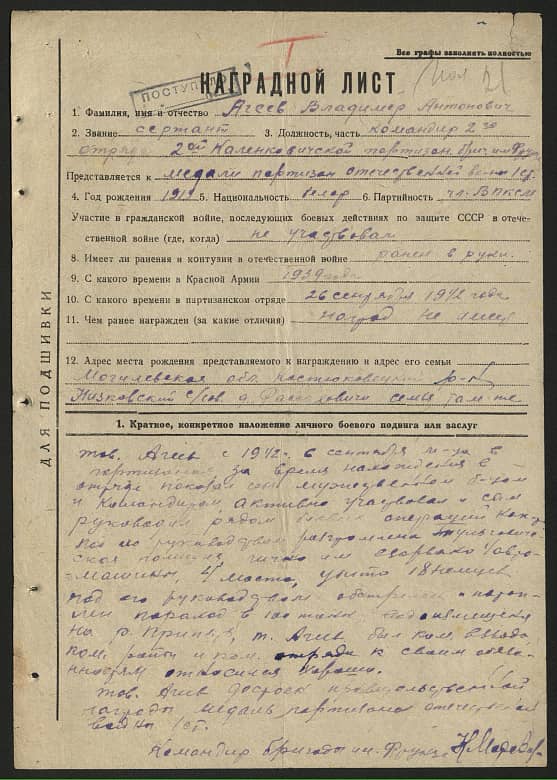 Все графы заполнять полностью
ПОСТУПИЛО
НАГРАДНОЙ ЛИСТ
1. Фамилия, имя и отчество Агеев Владимер Антонович
2. Звание сержант 3. Должность, часть командир 2го
отряда 2ой Каленковичской партизан. бриг. им Фрунзе
Представляется к медали партизан отечественной войны 1 ст.
4. Год рождения 1919 5. Национальность белор 6. Партийность чл. ВЛКСМ
Участие в гражданской войне, последующих боевых действиях по защите СССР в отече-
ственной войне (где, когда) не участвовал
8. Имеет ли ранения и контузии в отечественной войне ранен в руки.
9. С какого времени в Красной Армии 1939 года
10. С какого времени в партизанском отряде 26 сентября 1942 года
11. Чем ранее награжден (за какие отличия) наград не имеет
12. Адрес места рождения представляемого к награждению и адрес его семьи
Могилевская обл. Костюковецкий р-н
Низковский с/сов д. семья там-же
ДЛЯ ПОДШИВКИ
1. Краткое, конкретное изложение личного боевого подвига или заслуг
тов. Агеев с 1942г. сентября м-ца в
партизанах за время нахождения в
отряде показал себя мужественным бойцом
и командиром, активно участвовал и сам
руководил рядом боевых операций как
под его руководством разгромлена
полиция, лично им взорвано
машины, 4 моста, убито 18 немцев
под его руководством обстрелян и
паром в 100 тонн
на р. Припять, т. Агеев был ком. взвода
ком. роты и ком. отряда к своим обяза-
нностям относился хорошо.
тов. Агеев достоен правительственной
награды медаль партизана отечественной
войны 1 ст.
Командир бригады им. Фрунзе